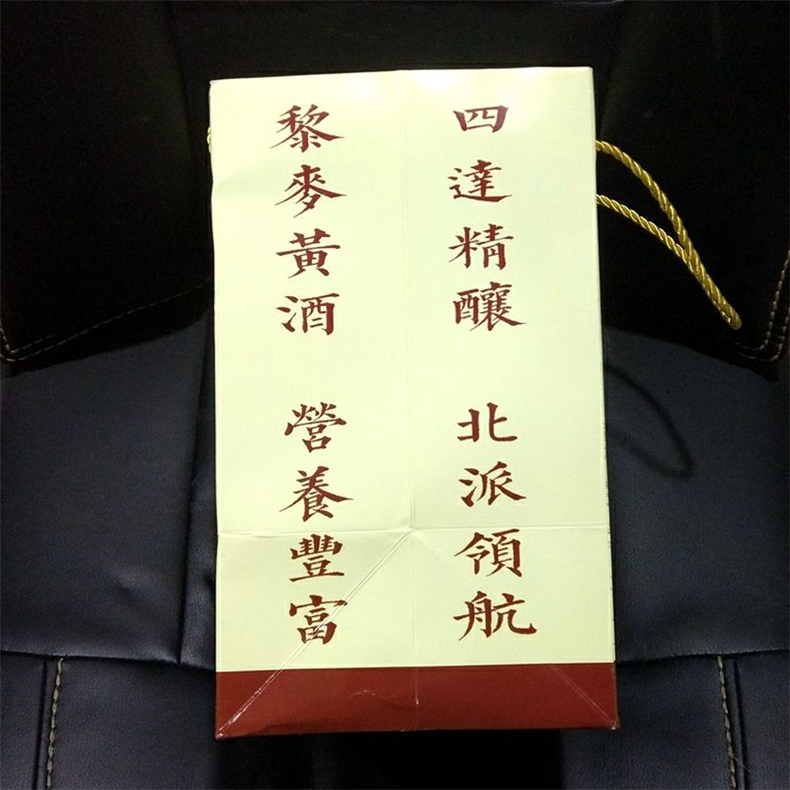 四達精釀 北派領航
黎麥黃酒 營養豐富